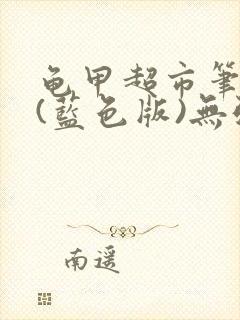 龟甲超市筆
(藍色版)無
南遥